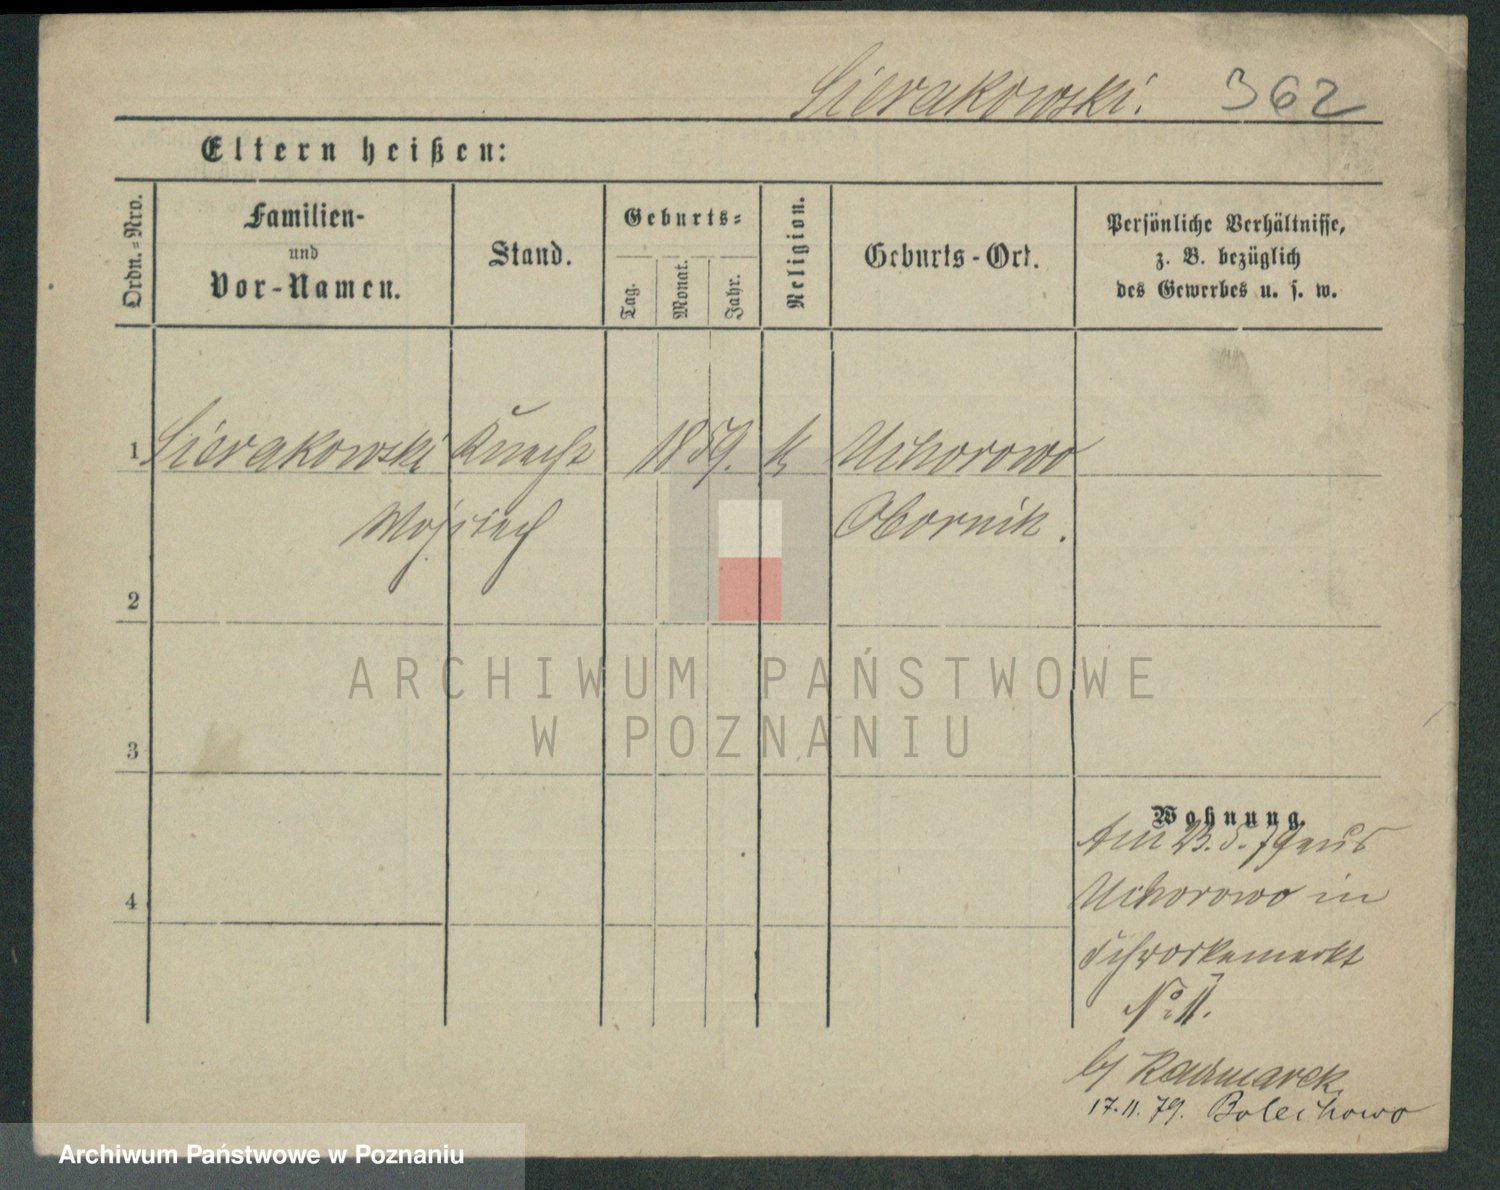 Sierakowski. 362
Eltern heißen:
Ordn.-Nro.
Familien-
und
Vor-Namen.
Stand.
Geburts-
Tag.
Monat.
Jahr.
Religion.
Geburts-Ort.
Persönliche Verhältnisse,
z. B. bezüglich
des Gewerbes u. s. w.
1 Sierakowski Knecht 1859. k Uchorowo
Wojciech Obornik.
2
3
4
Wohnung.
Am 23.5.79 aus
Uchorowo in
No
b/ Kaczmarek
17.11.79. Bolechowo
ARCHIWUM PAŃSTWOWE
W POZNANIU
Archiwum Państwowe w Poznaniu